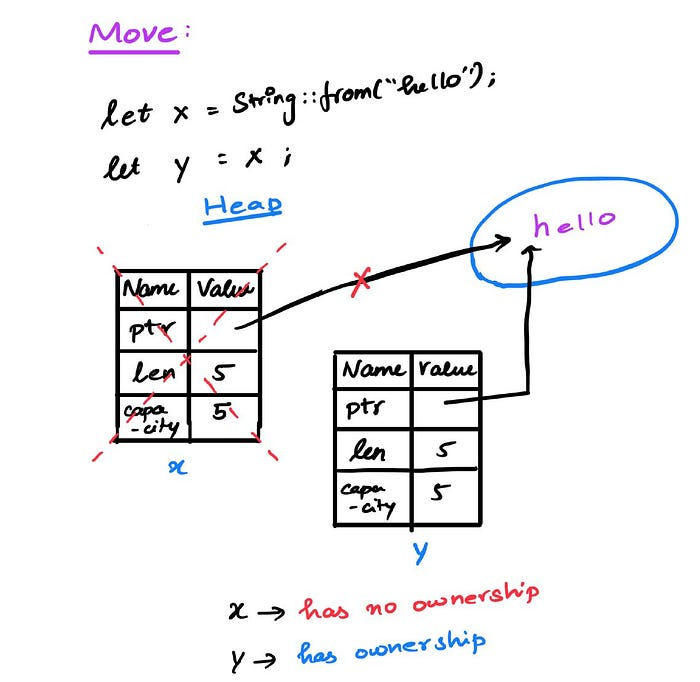 Move:
let x = String::from("hello");
let y = x ;
Heap
hello
Name Value
ptr
len 5
capa
-city 5
x
Name Value
ptr
len 5
capa
-city 5
y
x → has no ownership
y → has ownership